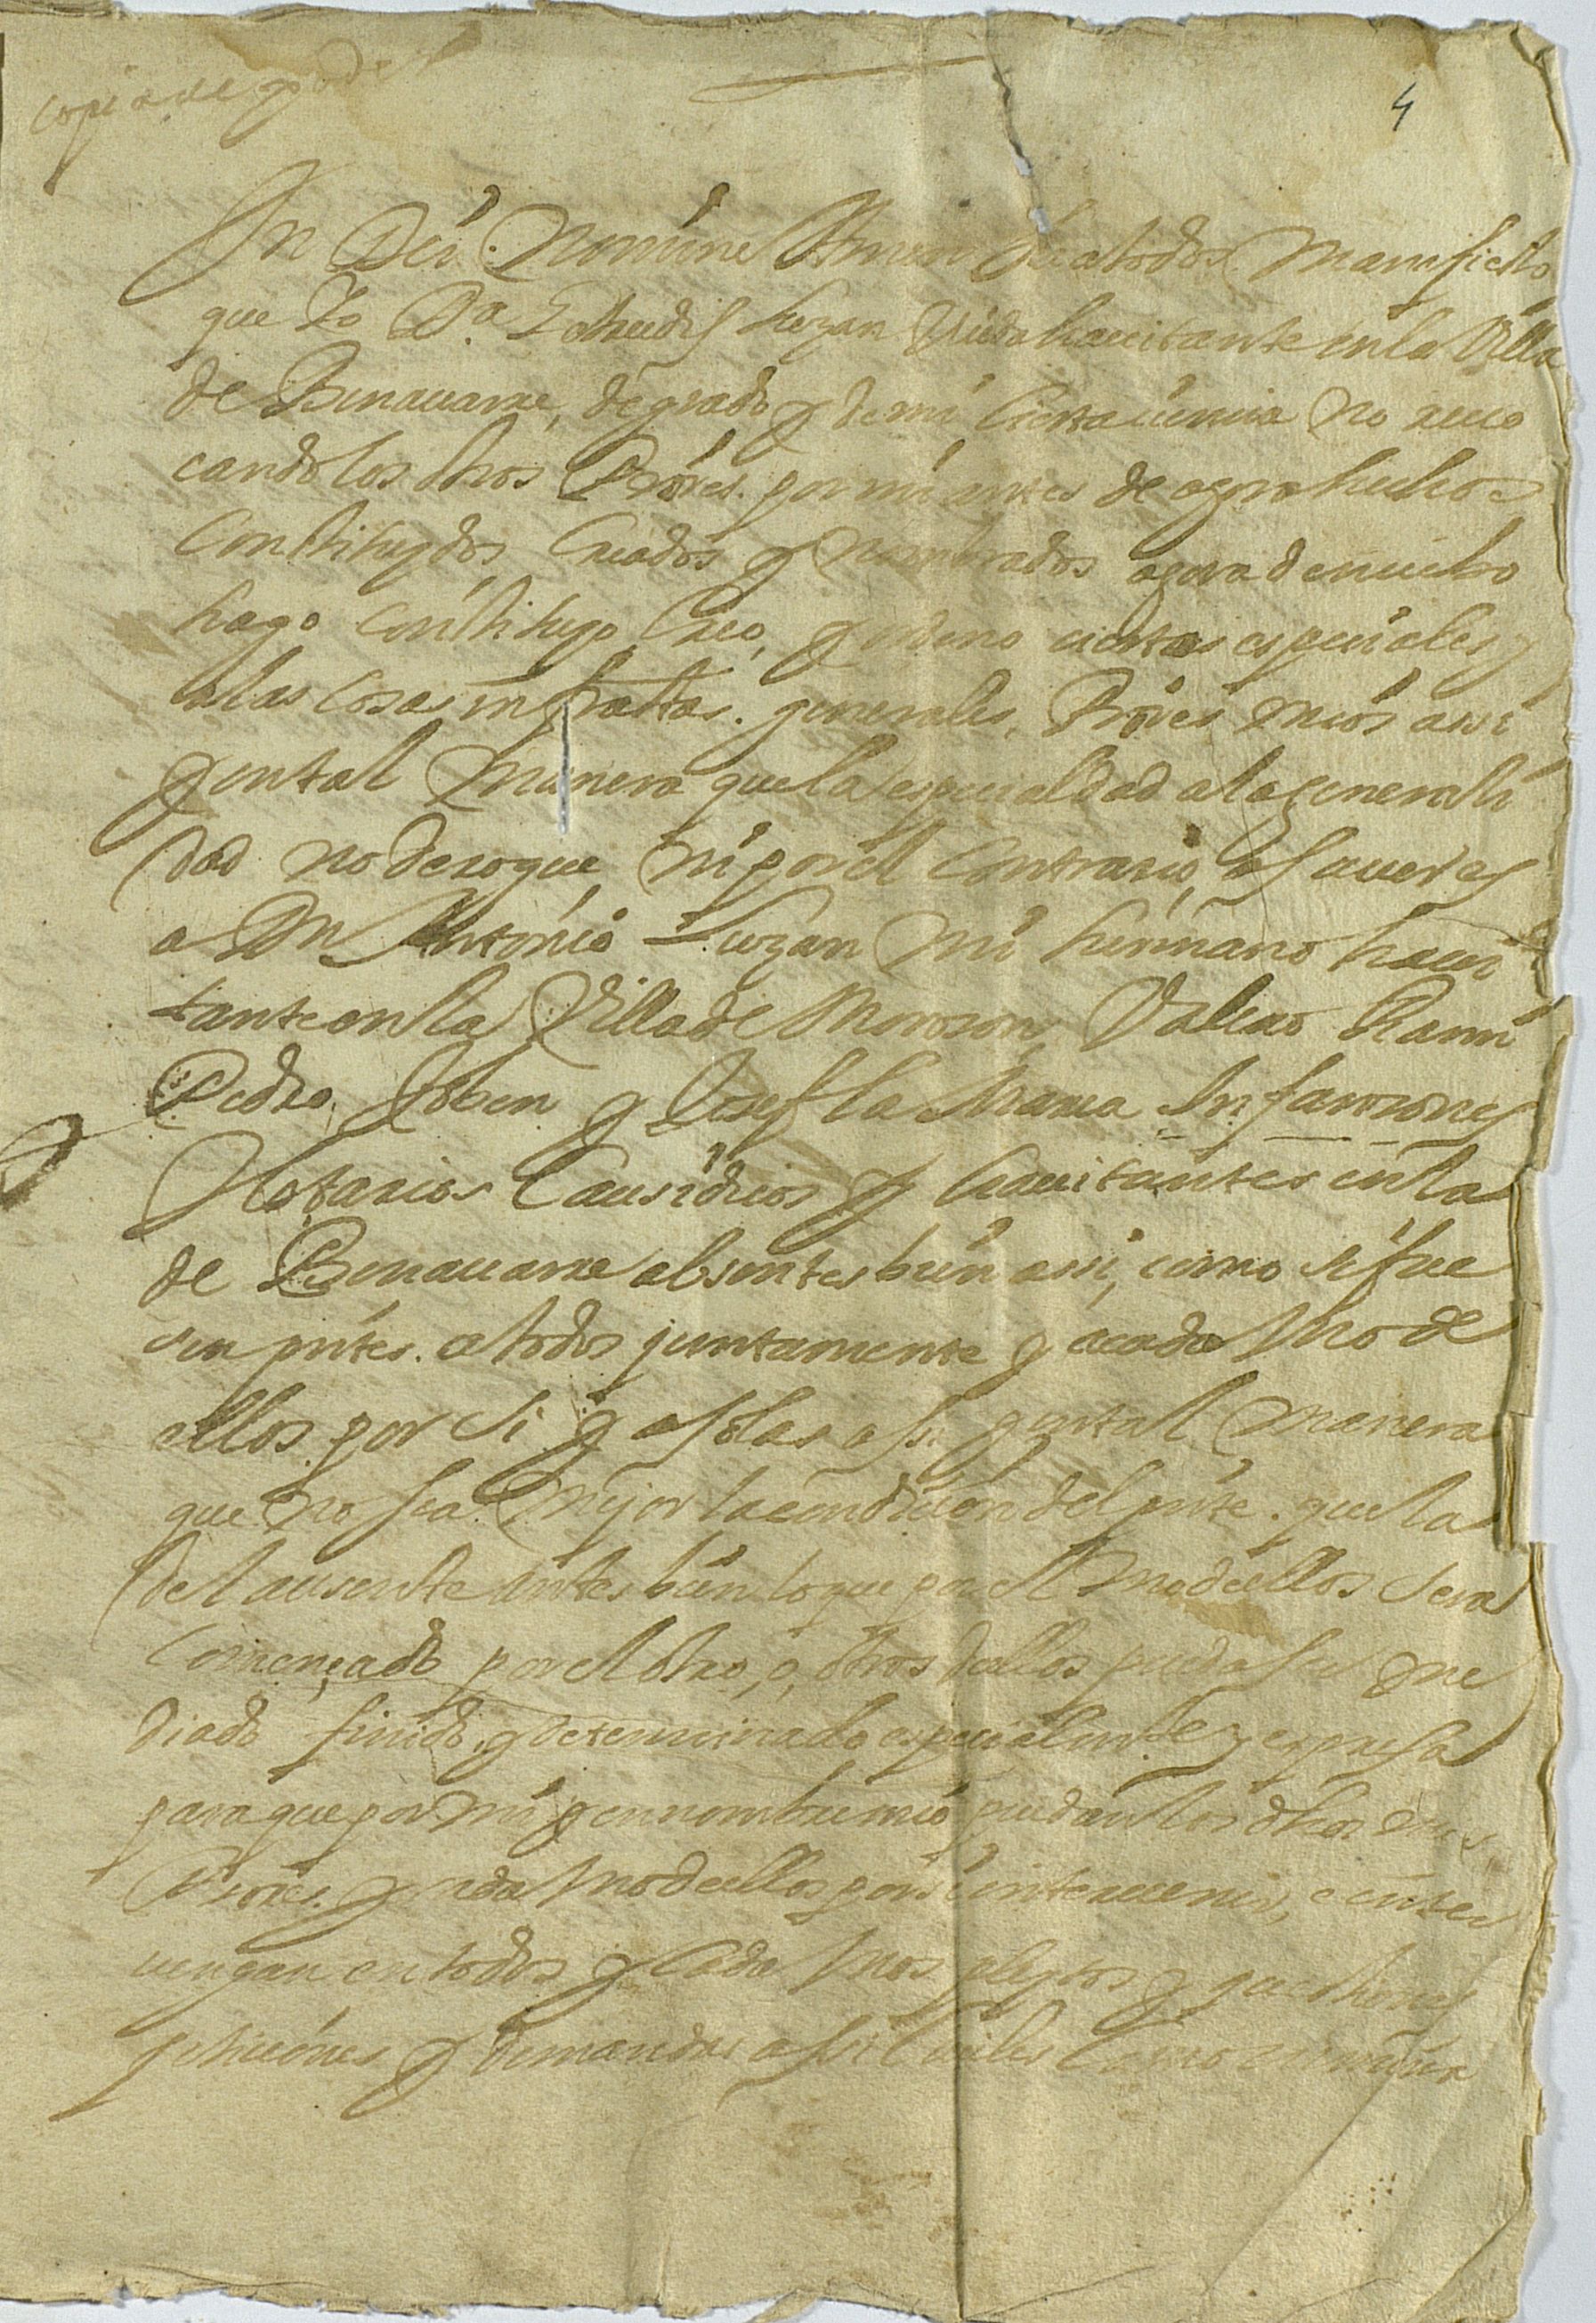 Copia de poder
4
In Dei Nomine Amen Sea atodos manifiesto
que Yo Da. Getrudis Luzan Viuda hauitante en la Villa
de Benauarre, de grado y de mi Cierta ciencia no reuo
cando los otros Prōres. por mi antes de agora hechos
Constituydos Creados y nombrados agora de nuebo
hago Constituyo, Creo, y ordeno ciertos especiales y
a las cosas infrattas. generales, Prōres mios assi
y en tal manera que la especialidad a la generali
dad no derogue, ni por el Contrario, a sauer es
a Dn Antonio Luzan mi hermano haui
tante en la Villa de Monzon, Valero
Pedro Joben y Josef la Marca Infanzones
Notarios Causidicos y hauitantes en la
de Benauarre absentes bien assi, como si fue
sen pntes. a todos juntamente y acada Vno de
ellos por si y a solas assi y en tal manera
que no sea mejor la condicion del pnte. que la
del ausente antes bien lo que por el Vno de ellos sera
Començado por el otro, o, otros dellos pueda ser me
diado finido, y determinado especialmente y expresa
para que por mi y en nombre mio puedan los dhos mis
Prōres. y cada Vno de ellos por si interuenir, e inter
uengan en todos y Cada Vnos pleytos y questiones
peticiones y demandas assi Ciuiles Como crimina